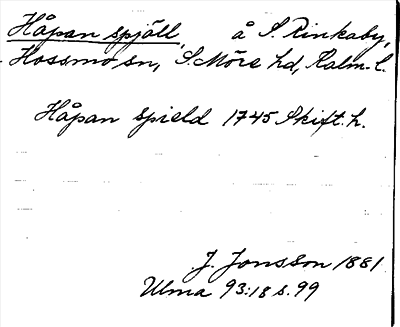 Håpan spjäll, å S. Rinkaby,
Hossmo sn, S. Möre hd, Kalm. l.
Håpan spield 1745 Skift. h.
J. Jonsson 1881
Ulma 93:18 s. 99